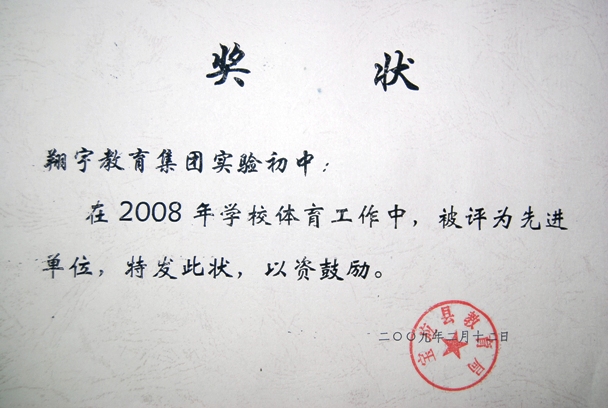 奖 状
翔宇教育集团实验初中：
在 2008 年学校体育工作中，被评为先进
单位，特发此状，以资鼓励。
二〇〇九年二月十二日
宝应县教育局